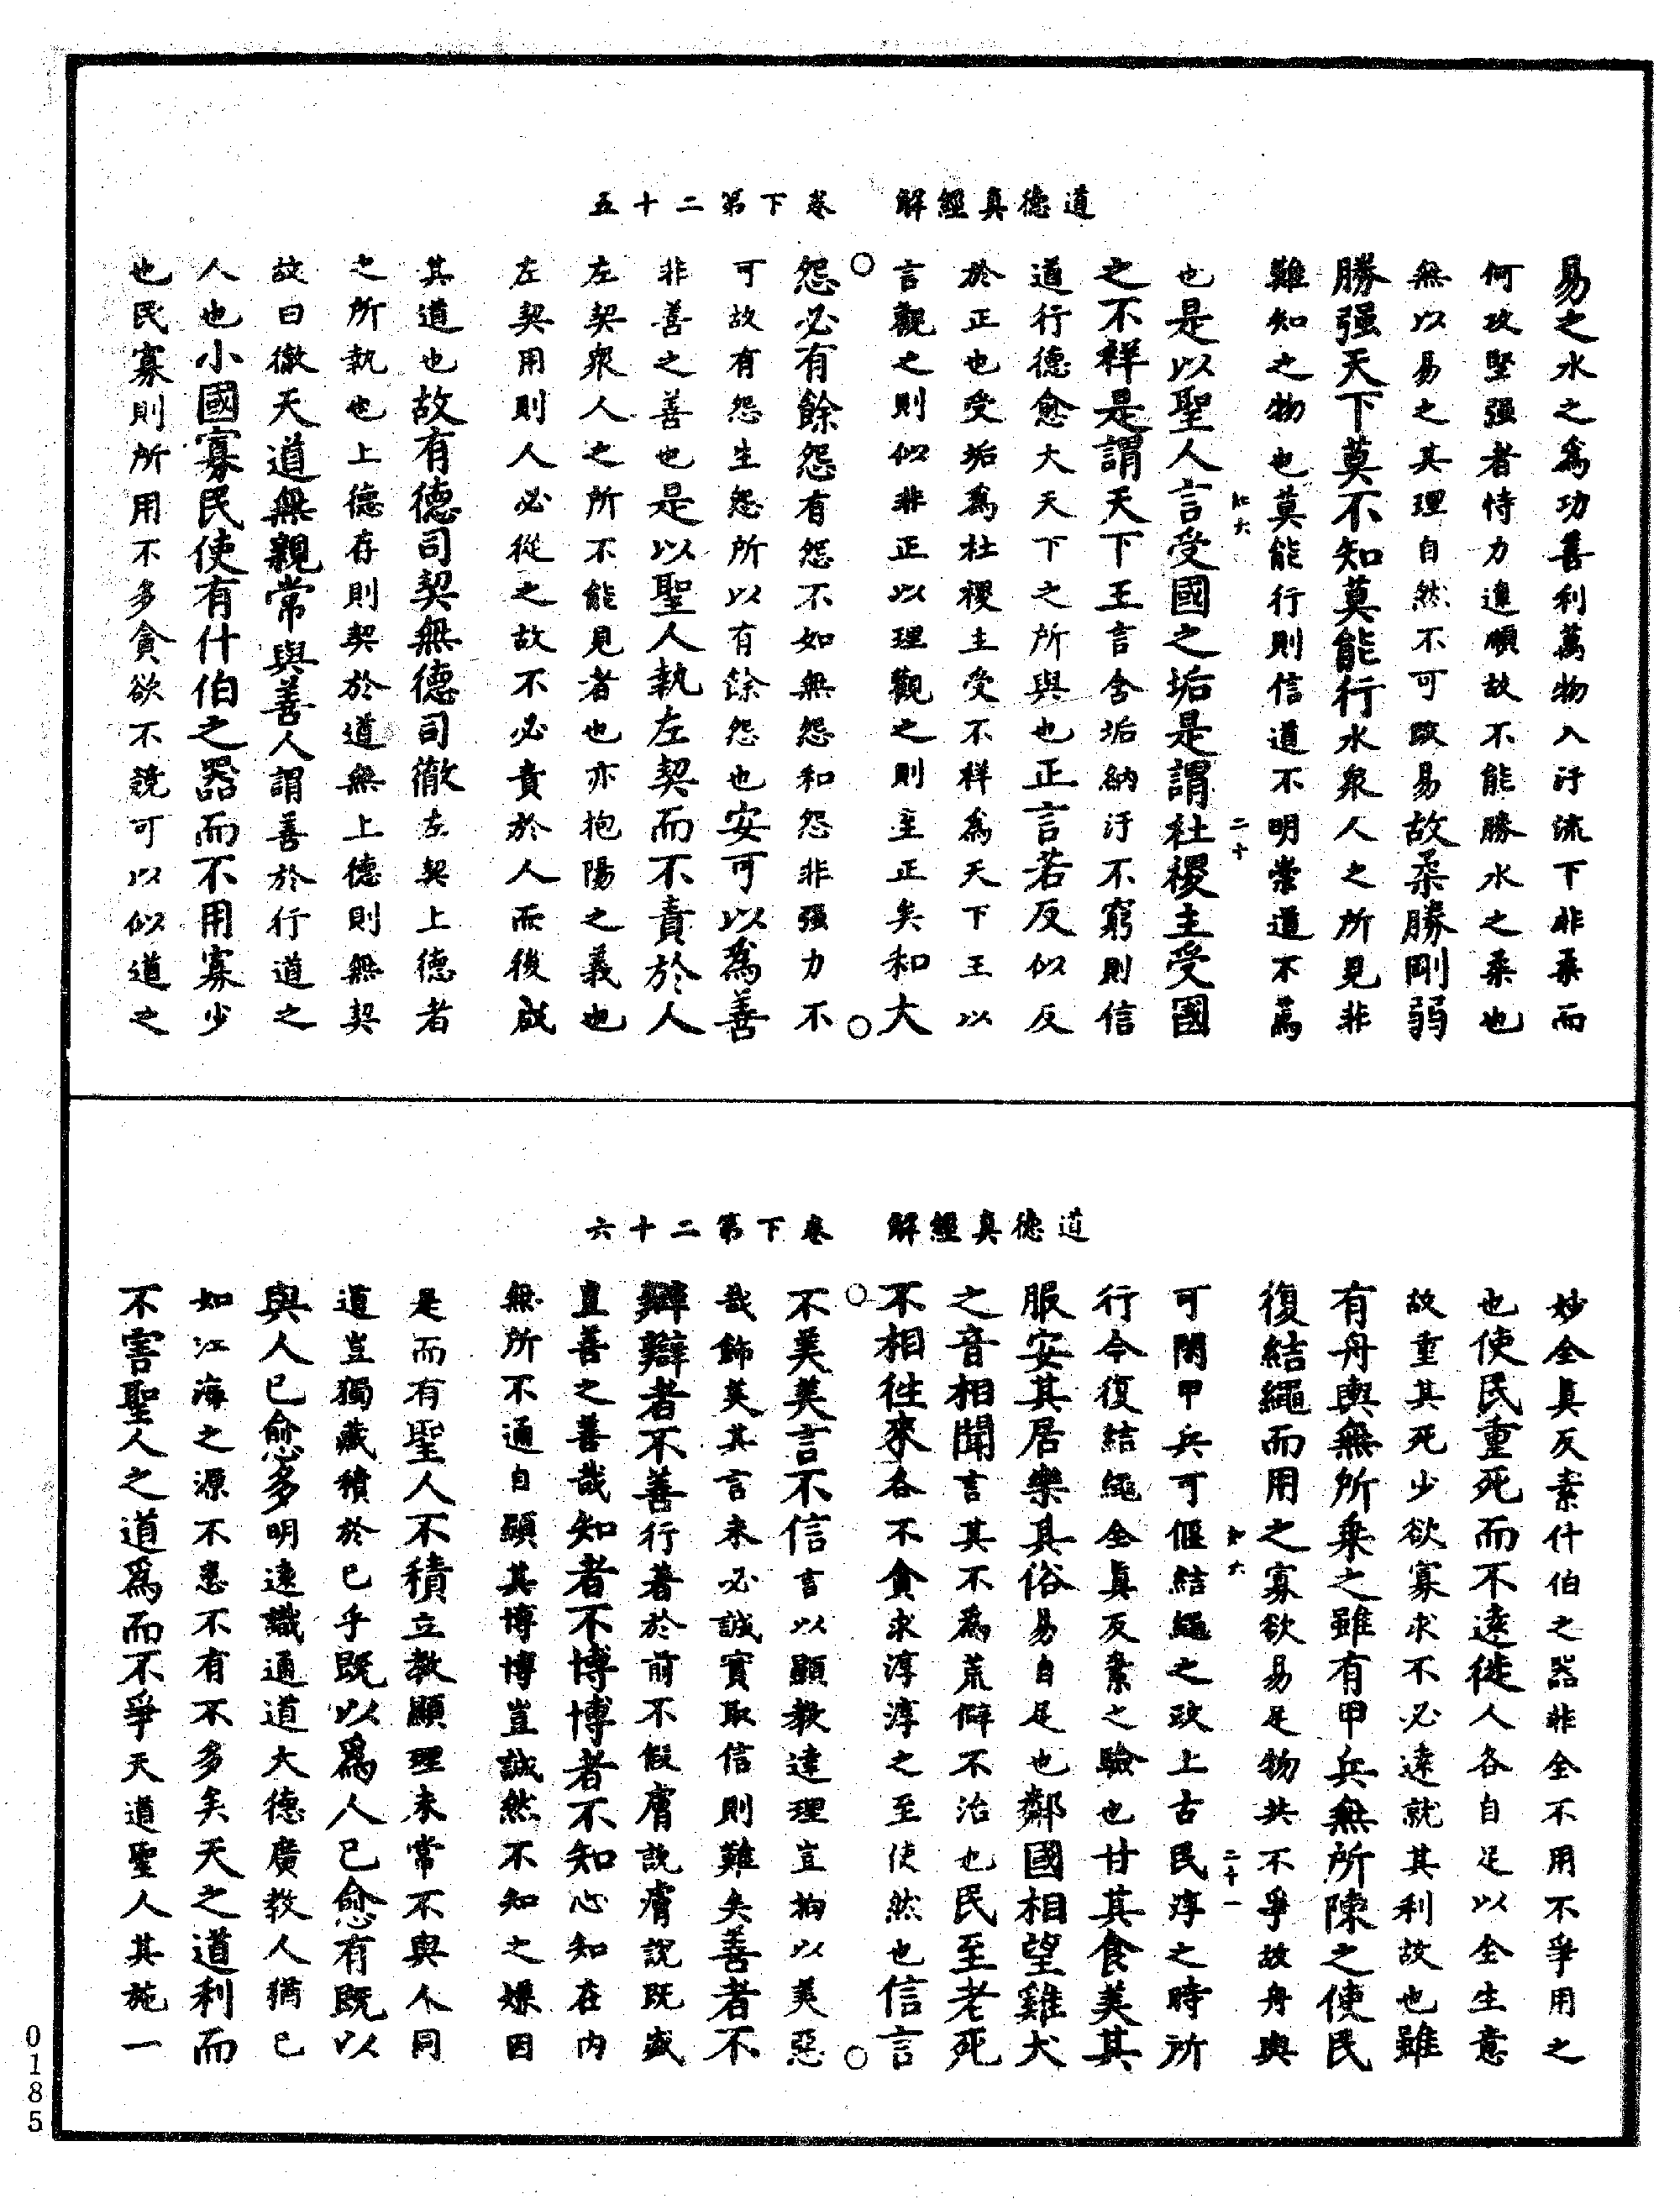 道德真經解　卷下第二十五
易之水之為功善利萬物入汙流下非柔而
何攻堅强者恃力違順故不能勝水之柔也
無以易之其理自然不可改易故柔勝剛弱
勝强天下莫不知莫能行水衆人之所見非
難知之物也莫能行則信道不明崇道不篤
也是以聖人言受國之垢是謂社稷主受國
之不祥是謂天下王言含垢納汙不窮則信
道行德愈大天下之所與也正言若反似反
於正也受垢為社稷主受不祥為天下王以
言觀之則似非正以理觀之則至正矣和大
怨必有餘怨有怨不如無怨和怨非强力不
可故有怨生怨所以有餘怨也安可以為善
非善之善也是以聖人執左契而不責於人
左契衆人之所不能見者也亦抱陽之義也
左契用則人必從之故不必責於人而後啟
其道也故有德司契無德司徹左契上德者
之所執也上德存則契於道無上德則無契
故曰徹天道無親常與善人謂善於行道之
人也小國寡民使有什伯之器而不用寡少
也民寡則所用不多貪欲不競可以似道之
知六
二十
道德真經解　卷下第二十六
妙全真反素什伯之器非全不用不爭用之
也使民重死而不遠徙人各自足以全生意
故重其死少欲寡求不必遠就其利故也雖
有舟輿無所乗之雖有甲兵無所陳之使民
復結繩而用之寡欲易足物共不爭故舟輿
可閑甲兵可偃結繩之政上古民淳之時所
行今復結繩全真反素之驗也甘其食美其
服安其居樂其俗易自足也鄰國相望雞犬
之音相聞言其不為荒僻不治也民至老死
不相往來各不貪求淳淳之至使然也信言
不美美言不信言以顯教達理豈拘以美惡
哉飾美其言未必誠實取信則難矣善者不
辯辯者不善行著於前不假膚說膚說既盛
豈善之善哉知者不博博者不知心知在内
無所不通自顯其博博豈誠然不知之嫌因
是而有聖人不積立教顯理未常不與人同
道豈獨藏積於己乎既以為人己愈有既以
與人己愈多明遠識通道大德廣教人猶己
如江海之源不患不有不多矣天之道利而
不害聖人之道為而不爭天道聖人其施一
知六
二十一
0185